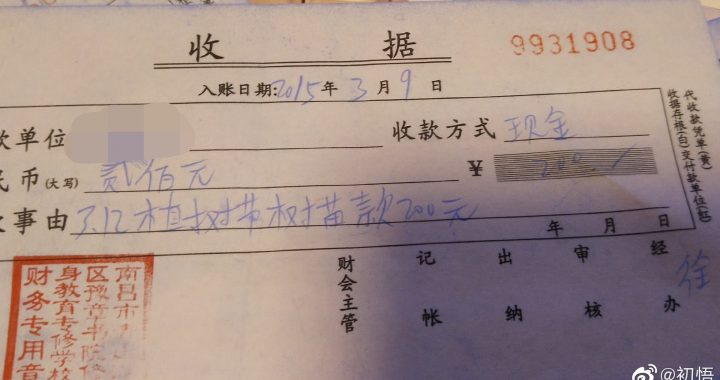 收 据 9931908
入账日期:2015年3月9日
款单位 收款方式 现金
民币(大写) 贰佰元 ¥ 200.
款事由 3.12植树带树描款200元
年 月 日
财会主管 记帐 出纳 审核 经办 徐
代收款凭单(黄)
收据存根(白)交付款单位(红)
南昌市
区豫章书院修
身教育专修学校
财务专用章
@初悟